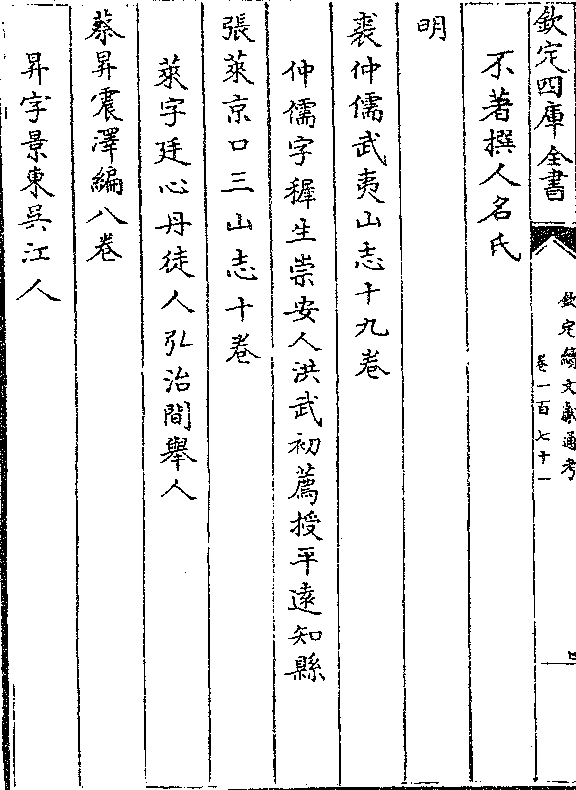 欽定四庫全書
欽定續文獻通考
卷一百七十一
不著撰人名氏
明
裘仲儒武夷山志十九卷
仲儒字穉生崇安人洪武初薦授平遠知縣
張萊京口三山志十卷
萊字廷心丹徒人弘治間舉人
蔡昇震澤編八卷
昇字景東吳江人